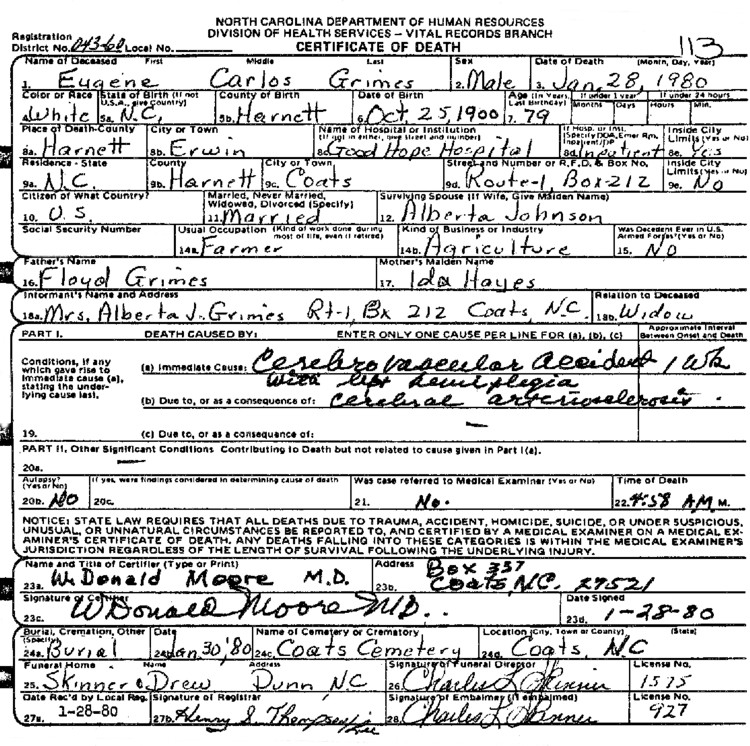 NORTH CAROLINA DEPARTMENT OF HUMAN RESOURCES
DIVISION OF HEALTH SERVICES – VITAL RECORDS BRANCH
CERTIFICATE OF DEATH
Registration
District No. 043-60 Local No.
113
Name of Deceased First Middle Last Sex Date of Death (Month, Day, Year)
1. Eugene Carlos Grimes 2. Male 3. Jan. 28, 1980
Color or Race State of Birth (If not U.S.A., give Country) County of Birth Date of Birth Age (In Years, Last Birthday) If under 1 year Months Days If under 24 hours Hours Min.
4. White 5a. N.C. 5b. Harnett 6. Oct. 25, 1900 7. 79
Place of Death-County City or Town Name of Hospital or Institution (If not in either, give street and number) If Hosp. or Inst. Specify DOA, Emer Rm, Inpatient/OP Inside City Limits (Yes or No)
8a. Harnett 8b. Erwin 8c. Good Hope Hospital 8d. Inpatient 8e. Yes
Residence - State County City or Town Street and Number or R.F.D. & Box No. Inside City Limits (Yes or No)
9a. N.C. 9b. Harnett 9c. Coats 9d. Route-1, Box-212 9e. No
Citizen of What Country? Married, Never Married, Widowed, Divorced (Specify) Surviving Spouse (If Wife, Give Maiden Name)
10. U.S. 11. Married 12. Alberta Johnson
Social Security Number Usual Occupation (Kind of work done during most of life, even if retired) Kind of Business or Industry Was Decedent Ever in U.S. Armed Forces? (Yes or No)
14a. Farmer 14b. Agriculture 15. No
Father's Name Mother's Maiden Name
16. Floyd Grimes 17. Ida Hayes
Informant's Name and Address Relation to Deceased
18a. Mrs. Alberta J. Grimes Rt-1, Bx 212 Coats, N.C. 18b. Widow
PART I. DEATH CAUSED BY: ENTER ONLY ONE CAUSE PER LINE FOR (a), (b), (c) Approximate Interval Between Onset and Death
Conditions, if any which gave rise to immediate cause (a), stating the underlying cause last.
(a) Immediate Cause: Cerebrovascular Accident 1 Wk
with left hemiplegia
(b) Due to, or as a consequence of: Cerebral arteriosclerosis
19. (c) Due to, or as a consequence of: —
PART II. Other Significant Conditions Contributing to Death but not related to cause given in Part I(a).
20a. —
Autopsy? (Yes or No) If yes, were findings considered in determining cause of death Was case referred to Medical Examiner (Yes or No) Time of Death
20b. No 20c. 21. No. 22. 4:58 A.M. M.
NOTICE: STATE LAW REQUIRES THAT ALL DEATHS DUE TO TRAUMA, ACCIDENT, HOMICIDE, SUICIDE, OR UNDER SUSPICIOUS,
UNUSUAL, OR UNNATURAL CIRCUMSTANCES BE REPORTED TO, AND CERTIFIED BY A MEDICAL EXAMINER ON A MEDICAL EX-
AMINER'S CERTIFICATE OF DEATH. ANY DEATHS FALLING INTO THESE CATEGORIES IS WITHIN THE MEDICAL EXAMINER'S
JURISDICTION REGARDLESS OF THE LENGTH OF SURVIVAL FOLLOWING THE UNDERLYING INJURY.
Name and Title of Certifier (Type or Print) Address Box 357
23a. W. Donald Moore M.D. 23b. Coats, N.C. 27521
Signature of Certifier Date Signed
23c. W Donald Moore MD.. 23d. 1-28-80
Burial, Cremation, Other (Specify) Date Name of Cemetery or Crematory Location (City, Town or County) (State)
24a. Burial 24b. Jan. 30, '80 24c. Coats Cemetery 24d. Coats, N.C
Funeral Home Name Address Signature of Funeral Director License No.
25. Skinner & Drew Dunn N.C 26. Charles L Skinner 1575
Date Rec'd by Local Reg. Signature of Registrar Signature of Embalmer (if embalmed) License No.
27a. 1-28-80 27b. Henry S. Thompson/ 28. Charles L Skinner 927